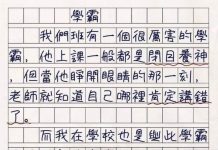 學霸
我們班有一個很厲害的學
霸，他上課一般都是閉目養神
，但當他睜開眼睛的那一刻，
老師就知道自己哪裡肯定講錯
了。
而我在學校也是與此學霸